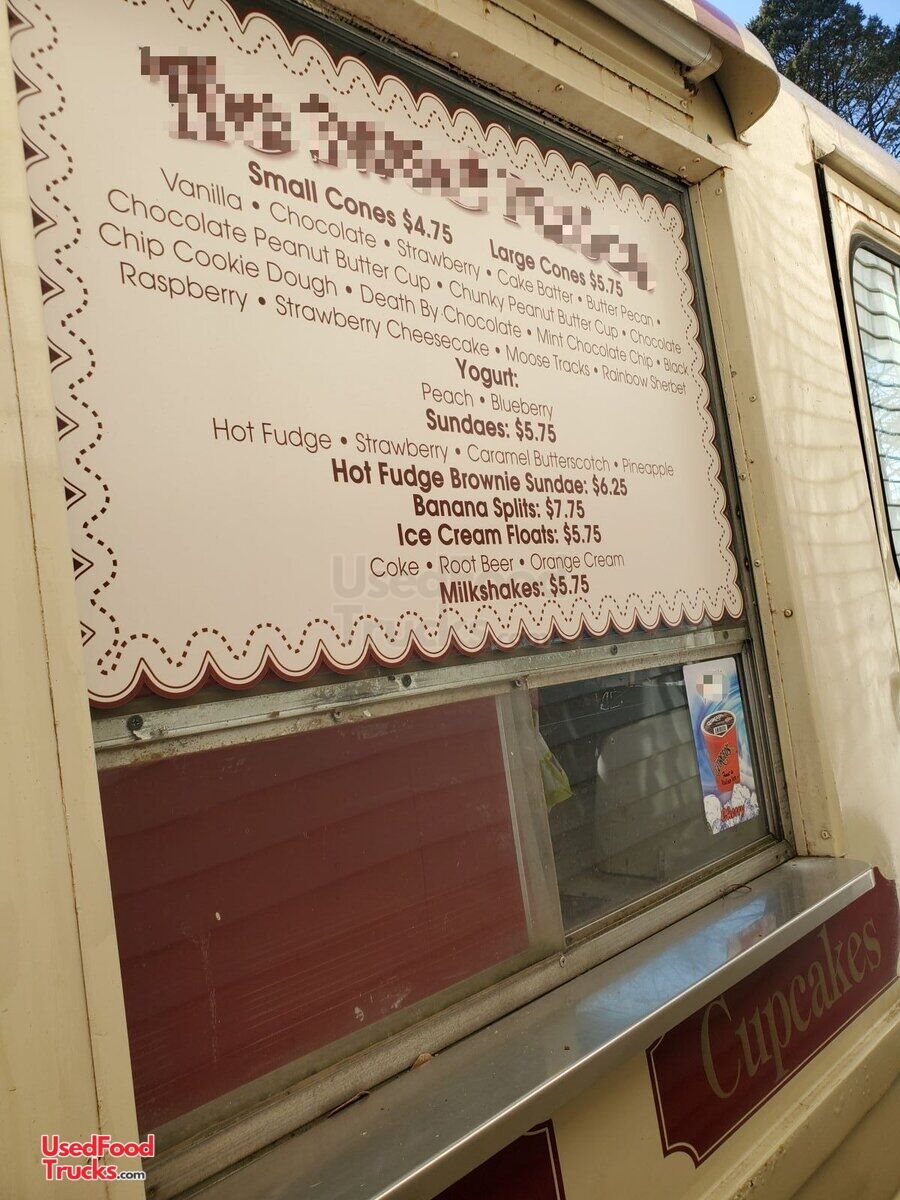 Small Cones $4.75 Large Cones $5.75
Vanilla • Chocolate • Strawberry • Cake Batter • Butter Pecan •
Chocolate Peanut Butter Cup • Chunky Peanut Butter Cup • Chocolate
Chip Cookie Dough • Death By Chocolate • Mint Chocolate Chip • Black
Raspberry • Strawberry Cheesecake • Moose Tracks • Rainbow Sherbet
Yogurt:
Peach • Blueberry
Sundaes: $5.75
Hot Fudge • Strawberry • Caramel Butterscotch • Pineapple
Hot Fudge Brownie Sundae: $6.25
Banana Splits: $7.75
Ice Cream Floats: $5.75
Coke • Root Beer • Orange Cream
Milkshakes: $5.75
Cupcakes
UsedFood
Trucks.com